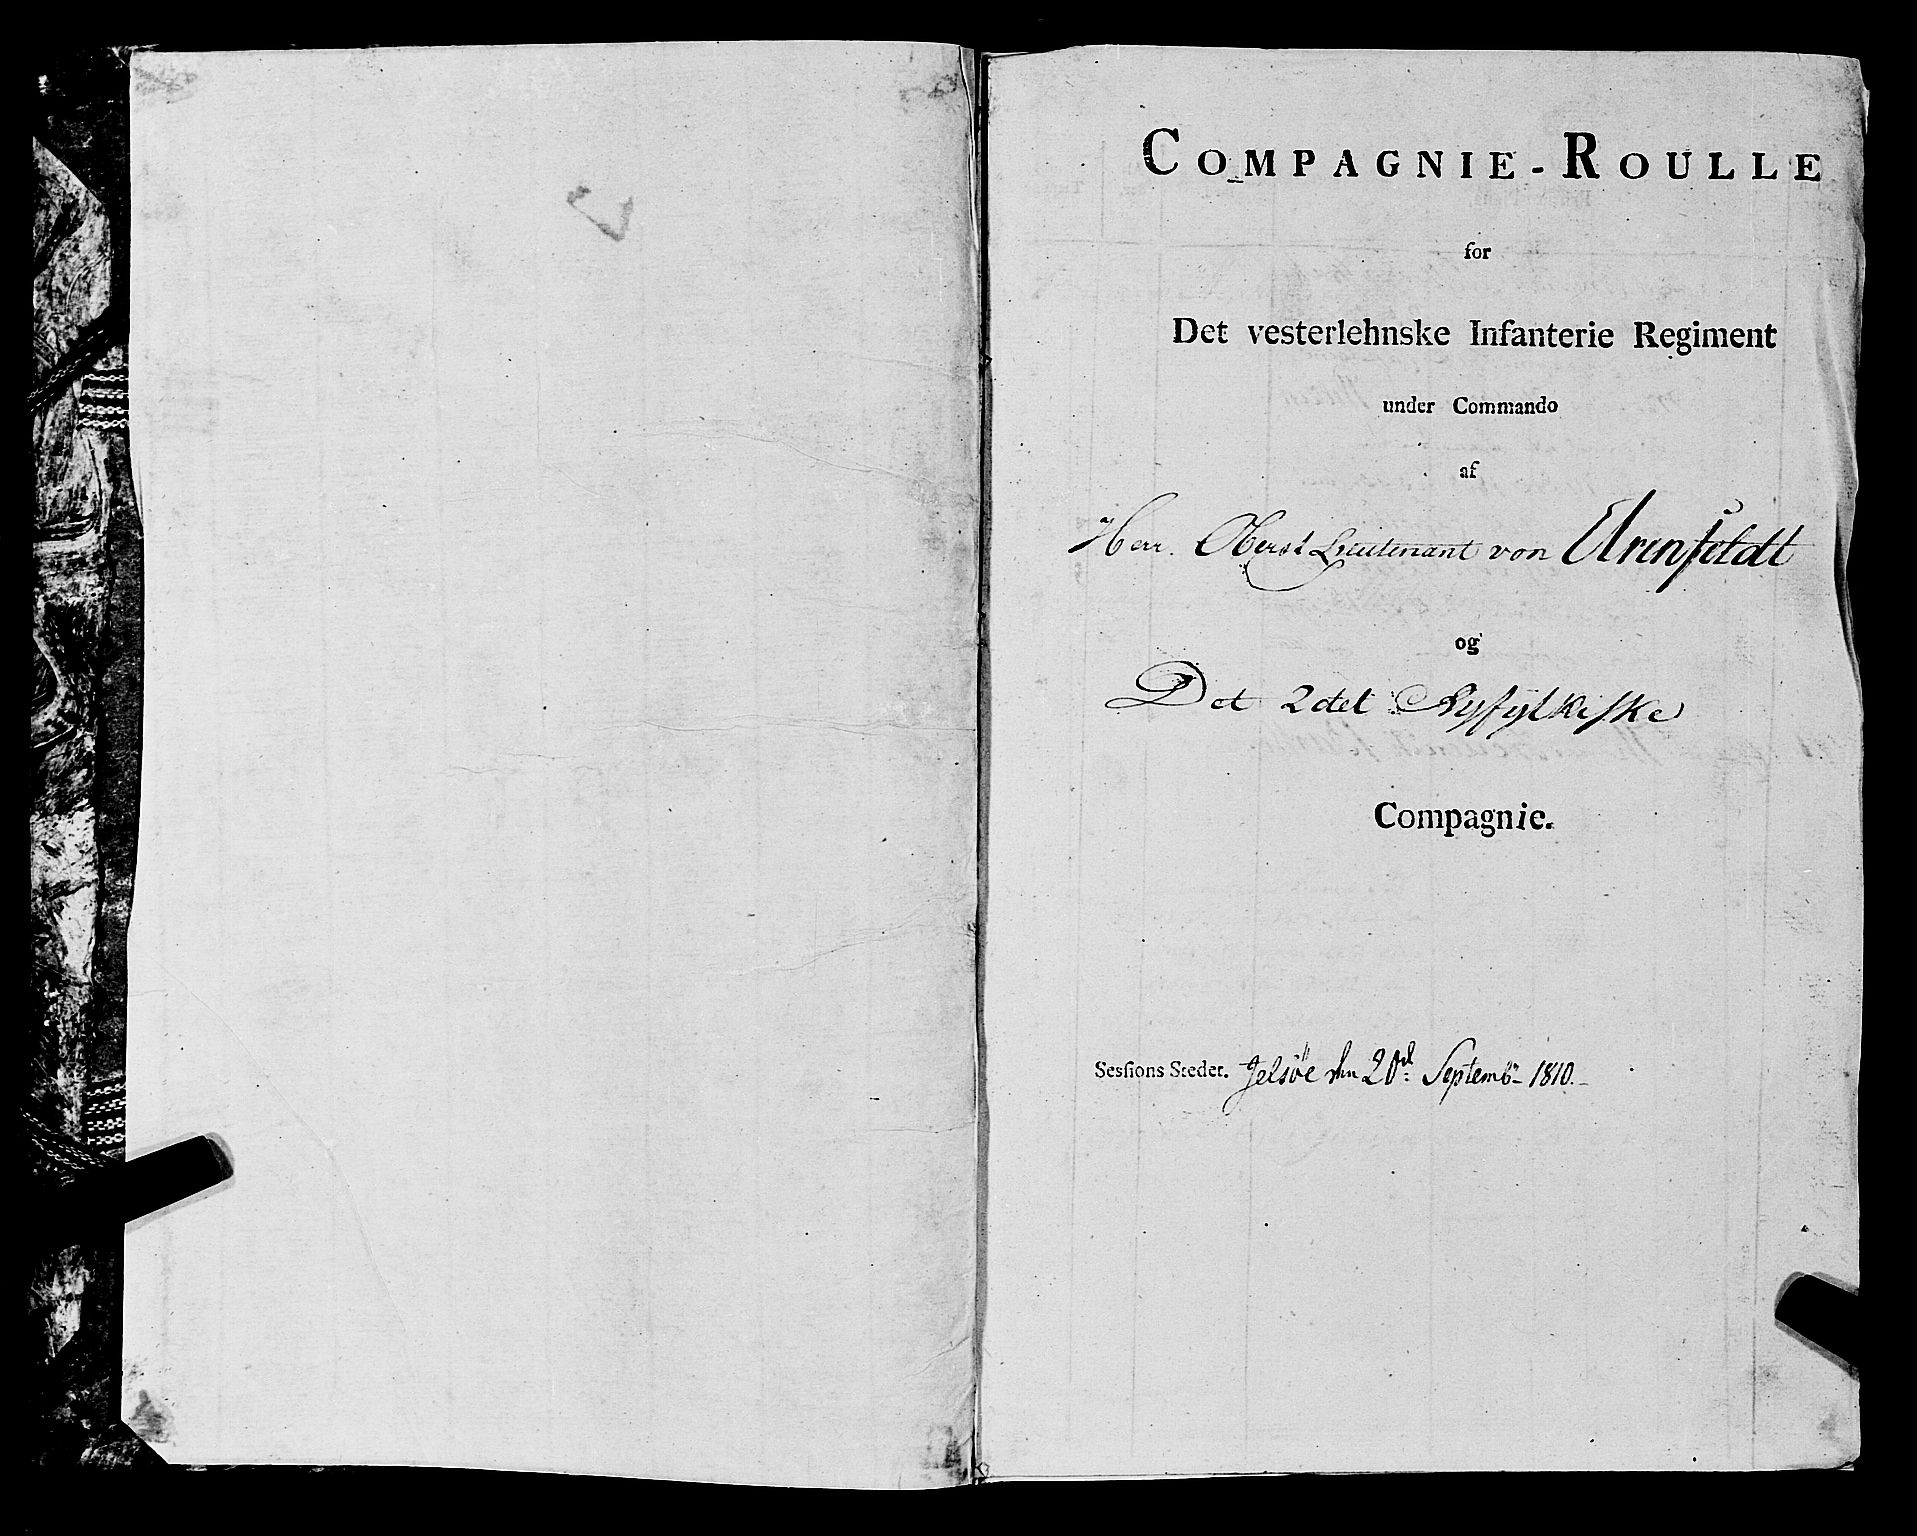 COMPAGNIE-ROULLE
for
Det vesterlehnske Infanterie Regiment
under Commando
af
Herr. Oberst Lieutenant von Arenfeldt
og
Det 2det Ryfylkiske
Compagnie.
Sesſions Stedet. Jelsöe den 20de Septembr 1810.